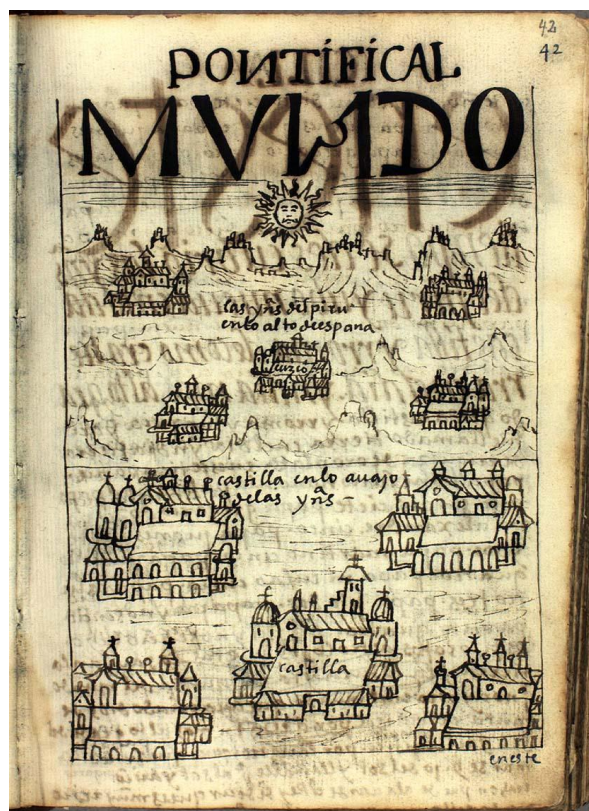 42
42
PONTIFICAL
MVNDO
las yn̄s del piru
en lo alto de espana
cuzco
castilla en lo auajo
de las yn̄s
castilla
en este